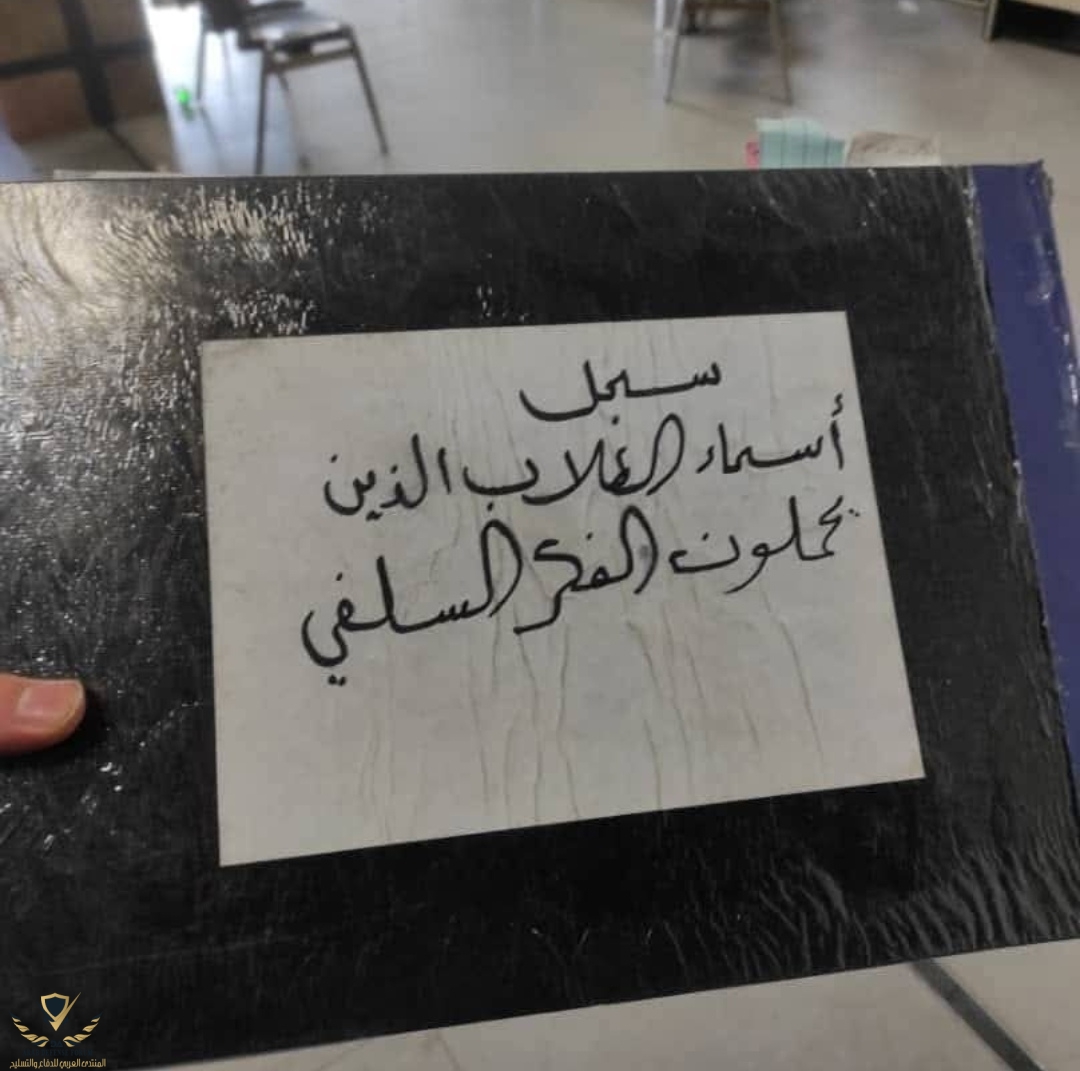 سجل
أسماء الطلاب الذين
يحملون الفكر السلفي
المنتدى العربي للدفاع والتسليح